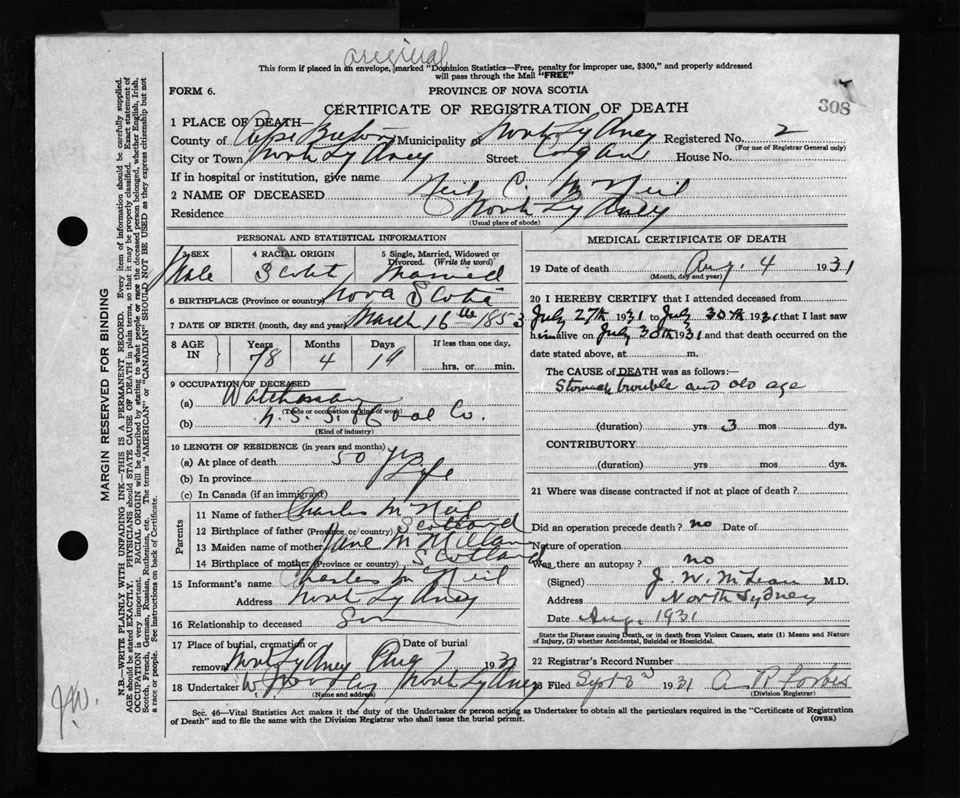 original
This form if placed in an envelope, marked "Dominion Statistics—Free, penalty for improper use, $300," and properly addressed
will pass through the Mail "FREE"
FORM 6. PROVINCE OF NOVA SCOTIA
308
CERTIFICATE OF REGISTRATION OF DEATH
1 PLACE OF DEATH—
County of Cape Breton Municipality of North Sydney Registered No. 2
(For use of Registrar General only)
City or Town North Sydney Street House No.
If in hospital or institution, give name
2 NAME OF DECEASED Neil C. McNeil
Residence North Sydney
(Usual place of abode)
PERSONAL AND STATISTICAL INFORMATION
3 SEX 4 RACIAL ORIGIN 5 Single, Married, Widowed or Divorced. (Write the word)
Male Scotch Married
6 BIRTHPLACE (Province or country) Nova Scotia
7 DATE OF BIRTH (month, day and year) March 16th 1853
8 AGE IN Years Months Days If less than one day,
78 4 19 hrs. or min.
9 OCCUPATION OF DECEASED
(a) Watchman
(Trade or occupation or kind of work)
(b) N. S. S. & Coal Co.
(Kind of industry)
10 LENGTH OF RESIDENCE (in years and months)
(a) At place of death 50 yrs
(b) In province Life
(c) In Canada (if an immigrant)
Parents
11 Name of father Charles McNeil
12 Birthplace of father (Province or country) Scotland
13 Maiden name of mother Jane McMillan
14 Birthplace of mother (Province or country) Scotland
15 Informant's name Charles McNeil
Address North Sydney
16 Relationship to deceased Son
17 Place of burial, cremation or removal North Sydney Date of burial Aug 7 1931
18 Undertaker W. North Sydney
(Name and address)
MEDICAL CERTIFICATE OF DEATH
19 Date of death Aug. 4 1931
(Month, day and year)
20 I HEREBY CERTIFY that I attended deceased from
July 27th 1931 to July 30th 1931 that I last saw
him alive on July 30th 1931 and that death occurred on the
date stated above, at m.
The CAUSE of DEATH was as follows:—
Stomach trouble and old age
(duration) yrs 3 mos dys.
CONTRIBUTORY
(duration) yrs. mos dys.
21 Where was disease contracted if not at place of death?
Did an operation precede death? no Date of
Nature of operation
Was there an autopsy? no
(Signed) J. W. McLean M.D.
Address North Sydney
Date Aug. 1931
State the Disease causing Death, or in death from Violent Causes, state (1) Means and Nature
of Injury, (2) whether Accidental, Suicidal or Homicidal.
22 Registrar's Record Number
23 Filed Sept 3rd 1931 A R Forbes
(Division Registrar)
Sec. 46—Vital Statistics Act makes it the duty of the Undertaker or person acting as Undertaker to obtain all the particulars required in the "Certificate of Registration
of Death" and to file the same with the Division Registrar who shall issue the burial permit. (OVER)
MARGIN RESERVED FOR BINDING
N.B.—WRITE PLAINLY WITH UNFADING INK—THIS IS A PERMANENT RECORD. Every item of information should be carefully supplied.
AGE should be stated EXACTLY. PHYSICIANS should STATE CAUSE OF DEATH in plain terms, so that it may be properly classified. Exact statement of
OCCUPATION is very important. RACIAL ORIGIN will be described by stating to what people or race the deceased person belonged, whether English, Irish,
Scotch, French, German, Russian, Ruthenian, etc. The terms "AMERICAN" or "CANADIAN" SHOULD NOT BE USED as they express citizenship but not
a race or people. See instructions on back of Certificate.
J.W.